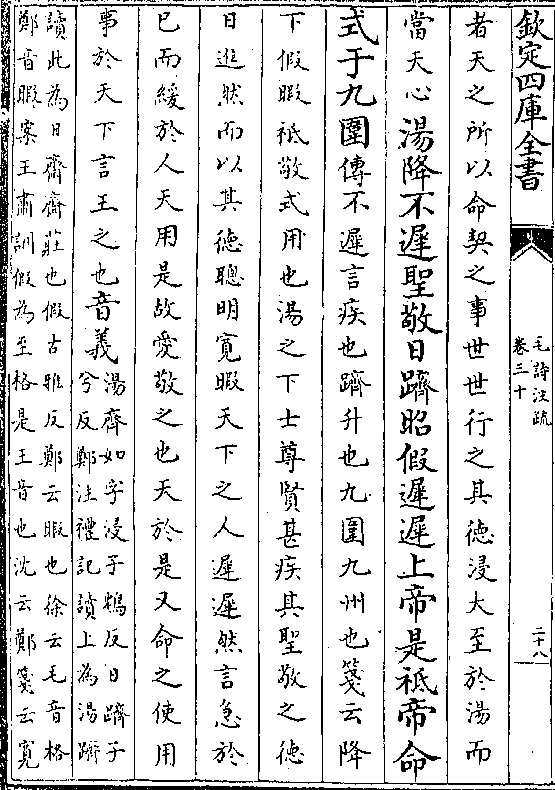 欽定四庫全書
毛詩注疏
卷三十
二十八
者天之所以命契之事世世行之其德浸大至於湯而
當天心湯降不遲聖敬日躋昭假遲遲上帝是祗帝命
式于九圍傳不遲言疾也躋升也九圍九州也箋云降
下假暇祗敬式用也湯之下士尊賢甚疾其聖敬之德
日進然而以其德聰明寛暇天下之人遲遲然言急於
已而緩於人天用是故愛敬之也天於是又命之使用
事於天下言王之也音義湯齊如字浸子鴆反日躋子
兮反鄭注禮記讀上為湯躋
讀此為日齊齊莊也假古雅反鄭云暇也徐云毛音格
鄭音暇案王肅訓假為至格是王音也沈云鄭箋云寛